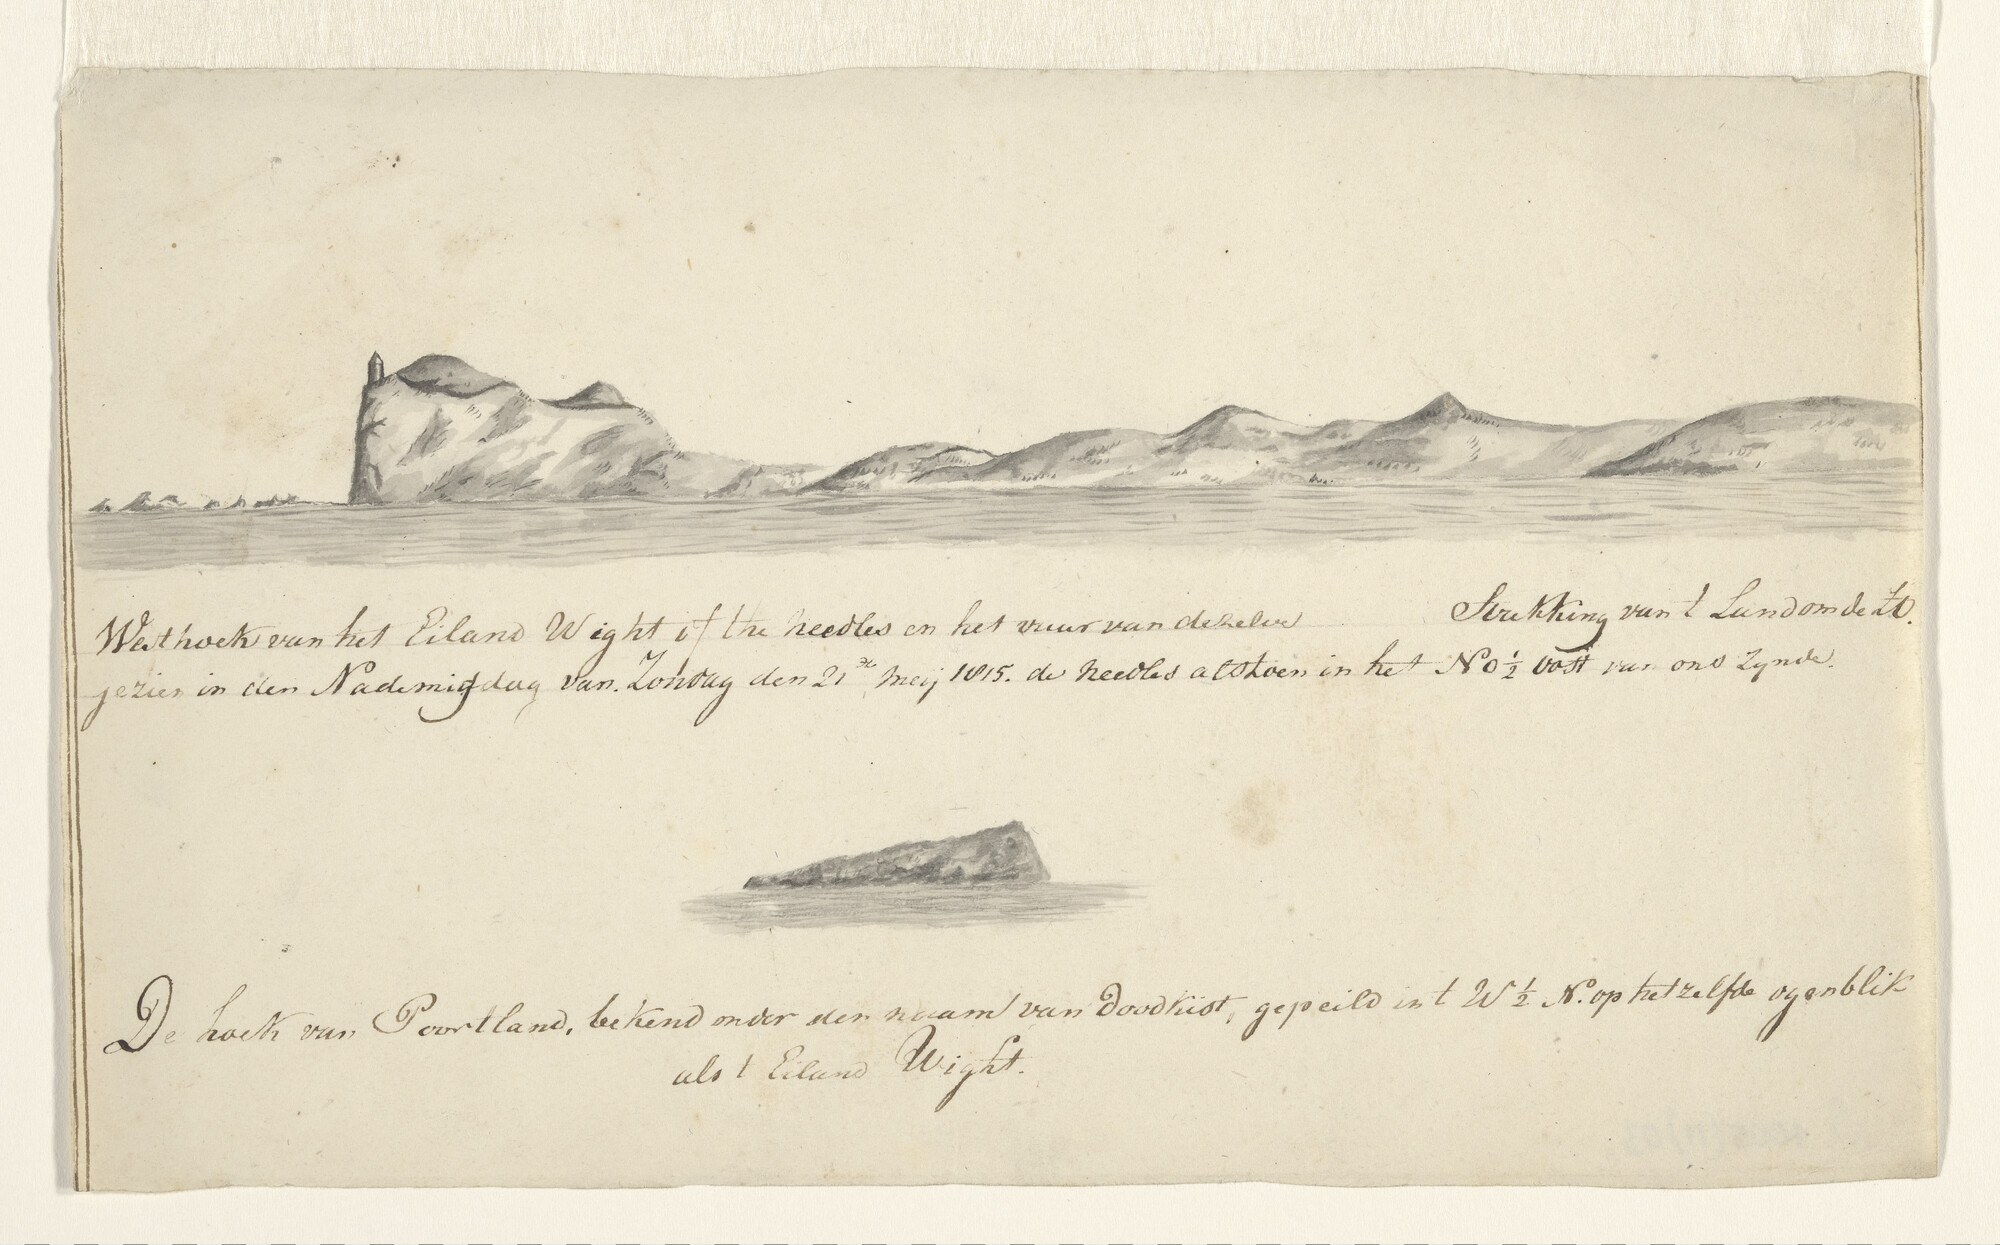 Westhoek van het Eiland Wight of the needles en het vuur van dezelve
Strekking van t Land om de Zt.
gezien in den Nademigdag van Zondag den 21e Meij 1815. de needles alstoen in het NO ½ oost van ons zynde.
De hoek van Poortland, bekend onder den naam van Doodkist, gepeild in t W ½ N. op het zelfde ogenblik
als t Eiland Wight.